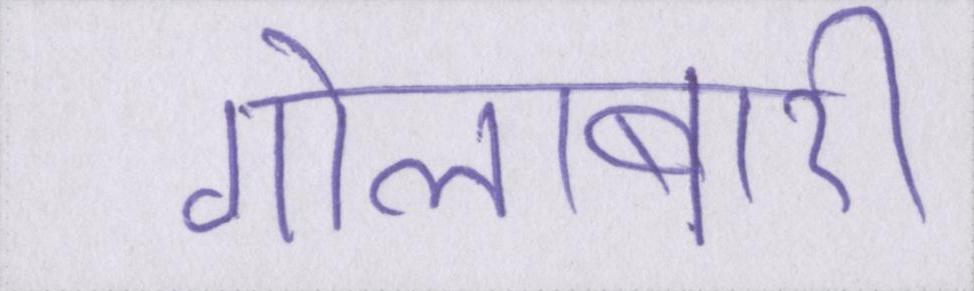 गोलाबारी